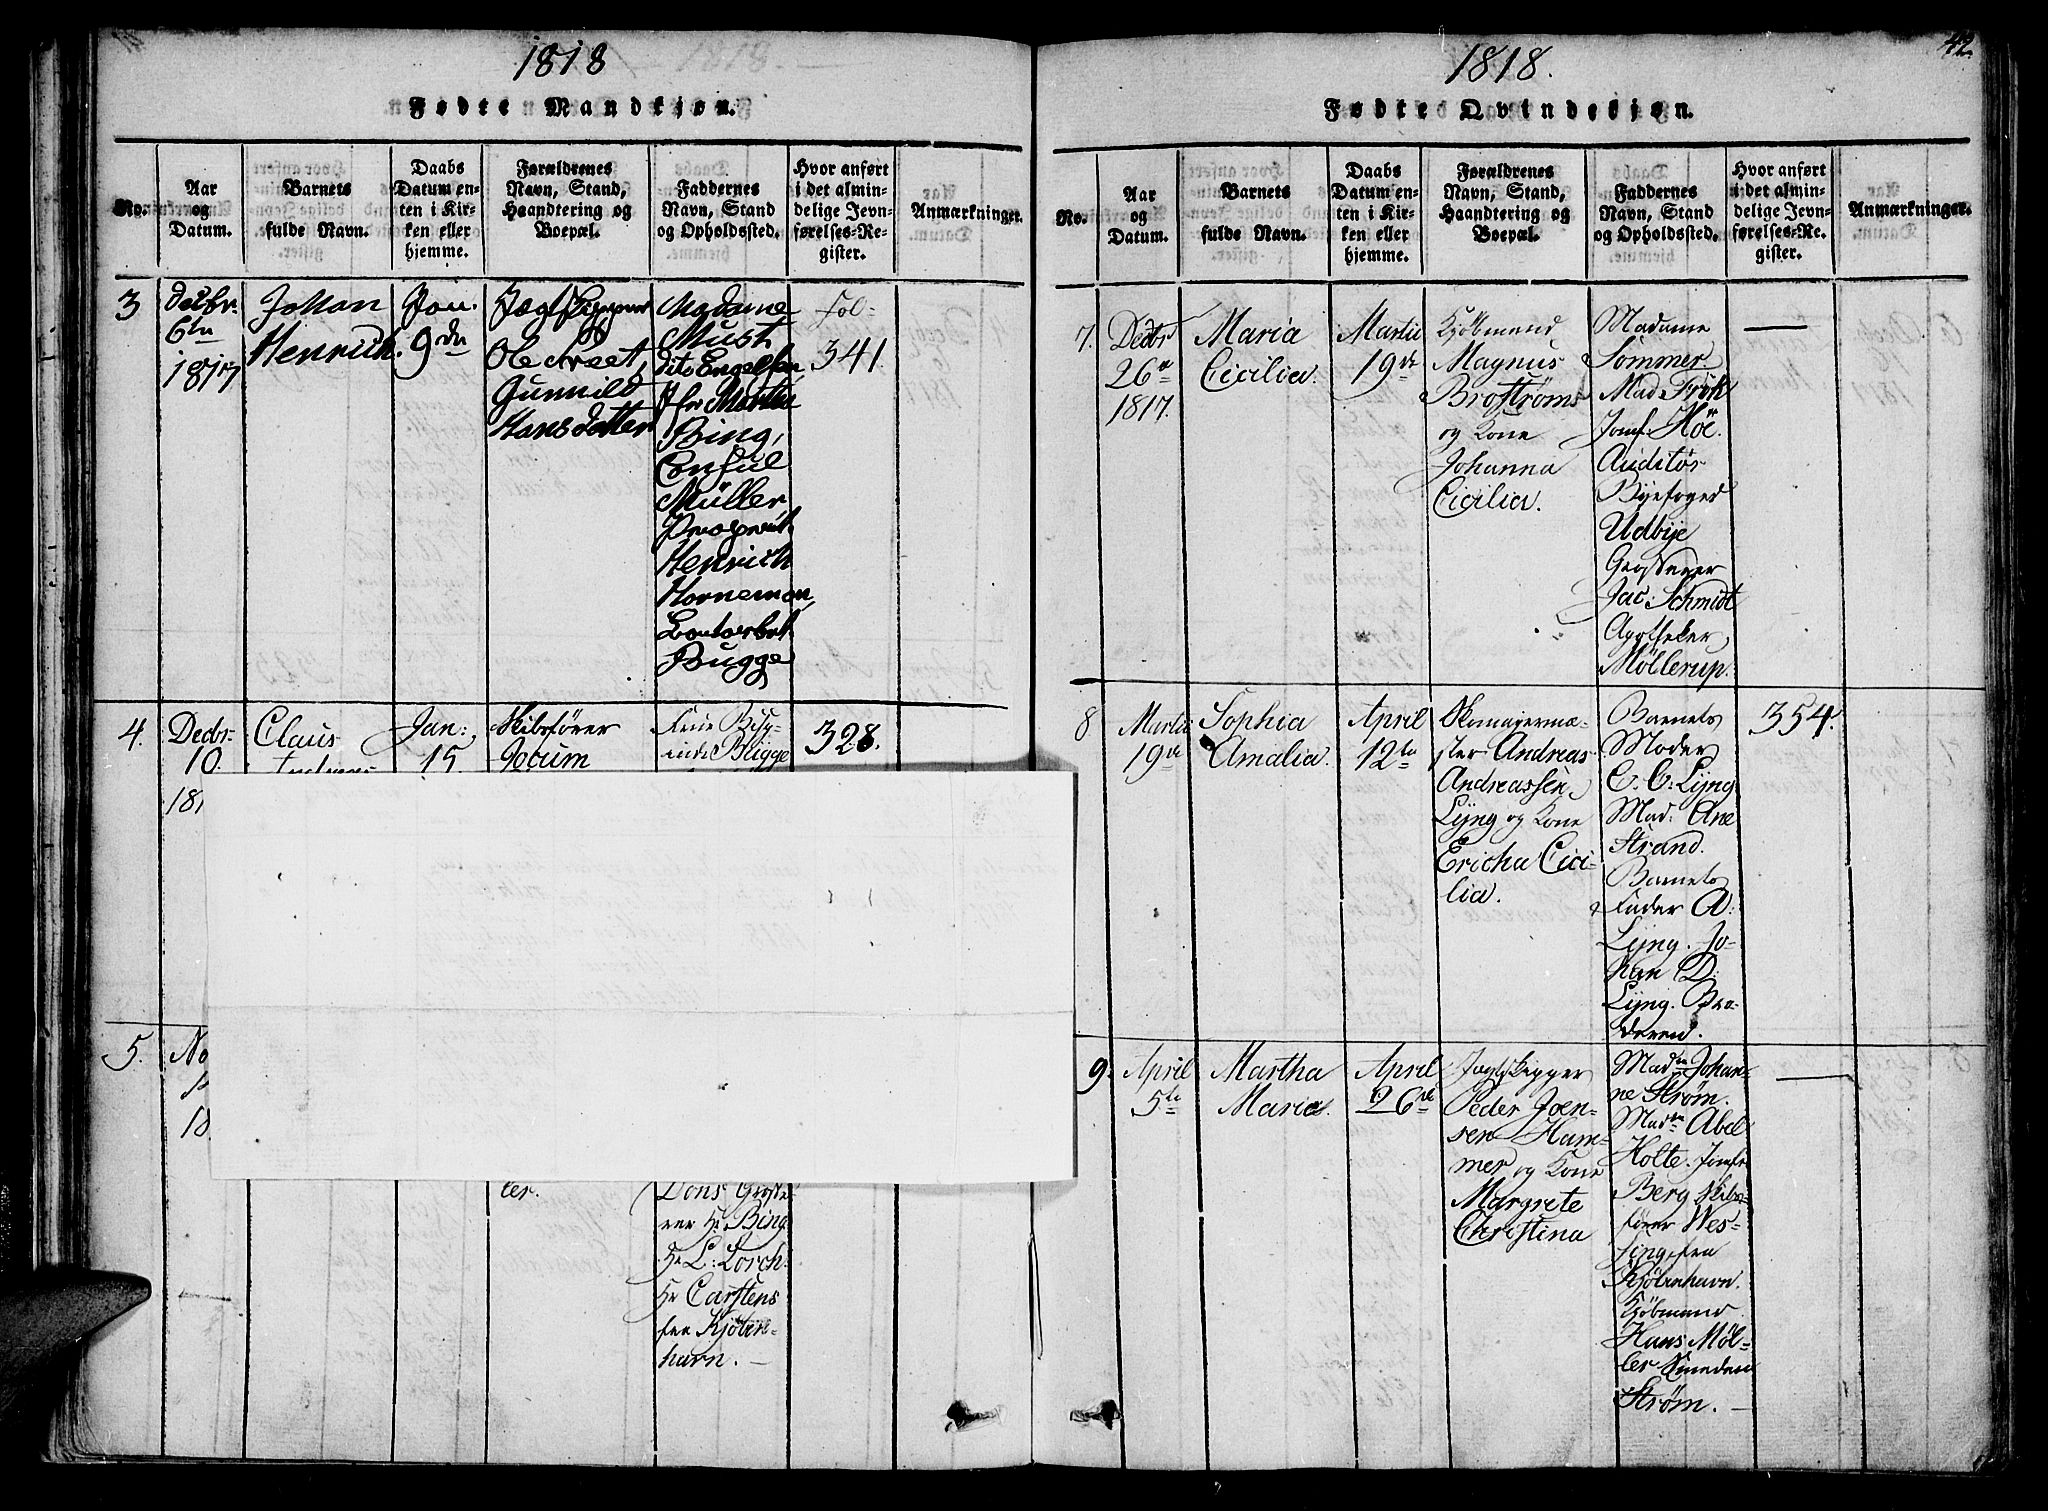 1818
Fødte Mandkjøn.
No.
Aar
og
Datum.
Barnets
fulde Navn.
Daabs
Datum en-
ten i Kir-
ken eller
hjemme.
Forældrenes
Navn, Stand,
Haandtering og
Boepæl.
Faddernes
Navn, Stand
og Opholdssted.
Hvor anført
i det almin-
delige Jevn-
førelses-Re-
gister.
Anmærkninger.
3
Decbr
6te
1817
Johan
Henrich.
Jan.
9de
Jægtskipper
Ole
Gunnild
Hansdatter
Madame
Must
dito Engelsen,
Jfr Martha
Bing,
Consul
Müller
Henrich
Horneman,
Bugge
Fol-
341.
4.
Decbr
10.
181
Claus
Jan:
15.
Skibsfører
Jocum
Bugge
328.
5.
No
1
18
ler.
Dons Grosse-
rer Hr. Bing
Hr L: Lorch.
Hr Carstens
fra Kjøben-
havn. —
1818.
42.
Fødte Qvindekjøn.
No.
Aar
og
Datum.
Barnets
fulde Navn.
Daabs
Datum en-
ten i Kir-
ken eller
hjemme.
Forældrenes
Navn, Stand,
Haandtering og
Boepæl.
Faddernes
Navn, Stand
og Opholdssted.
Hvor anført
i det almin-
delige Jevn-
førelses-Re-
gister.
Anmærkninger.
7.
Decbr
26de
1817.
Maria
Cicilia.
Martii
19de
Kjøbmand
Magnus
Broströms
og Kone
Johanna
Cicilia.
Madame
Sommer.
Mad Frök
Jomf: Höe.
Auditør
Byefoged
Udbye
Grosserer
Jac: Schmidt
Apotheker
Möllerup.
8
Martii
19de
Sophia
Amalia.
April
12te
Skomagermæ-
ster Andreas
Andreassen
Lyng og Kone
Ericha Cici-
lia.
Barnets
Moder
C. C: Lyng
Mad: Ane
Strand.
Barnets
Fader A:
Lyng. Jo-
han D:
Lyng. Bro-
deren.
354.
9.
April
5te
Martha
Maria.
April
26de
Jægtskipper
Peder Joen-
sen Ham-
mer og Kone
Margrete
Christina
Madm Johan-
ne Strøm.
Madm Abel
Holte. Jomfr
Berg Skibs-
fører Wes-
sing fra
Kjöbenhavn.
Kjöbmand
Hans Möl-
ler
Strøm. —